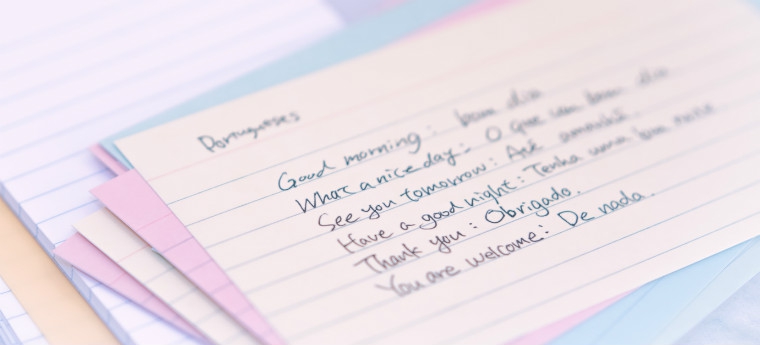 Portugueses
Good morning: bom dia
What a nice day: O que um bom dia
See you tomorrow: Até amanhã.
Have a good night: Tenha uma boa noite
Thank you: Obrigado.
You are welcome: De nada.